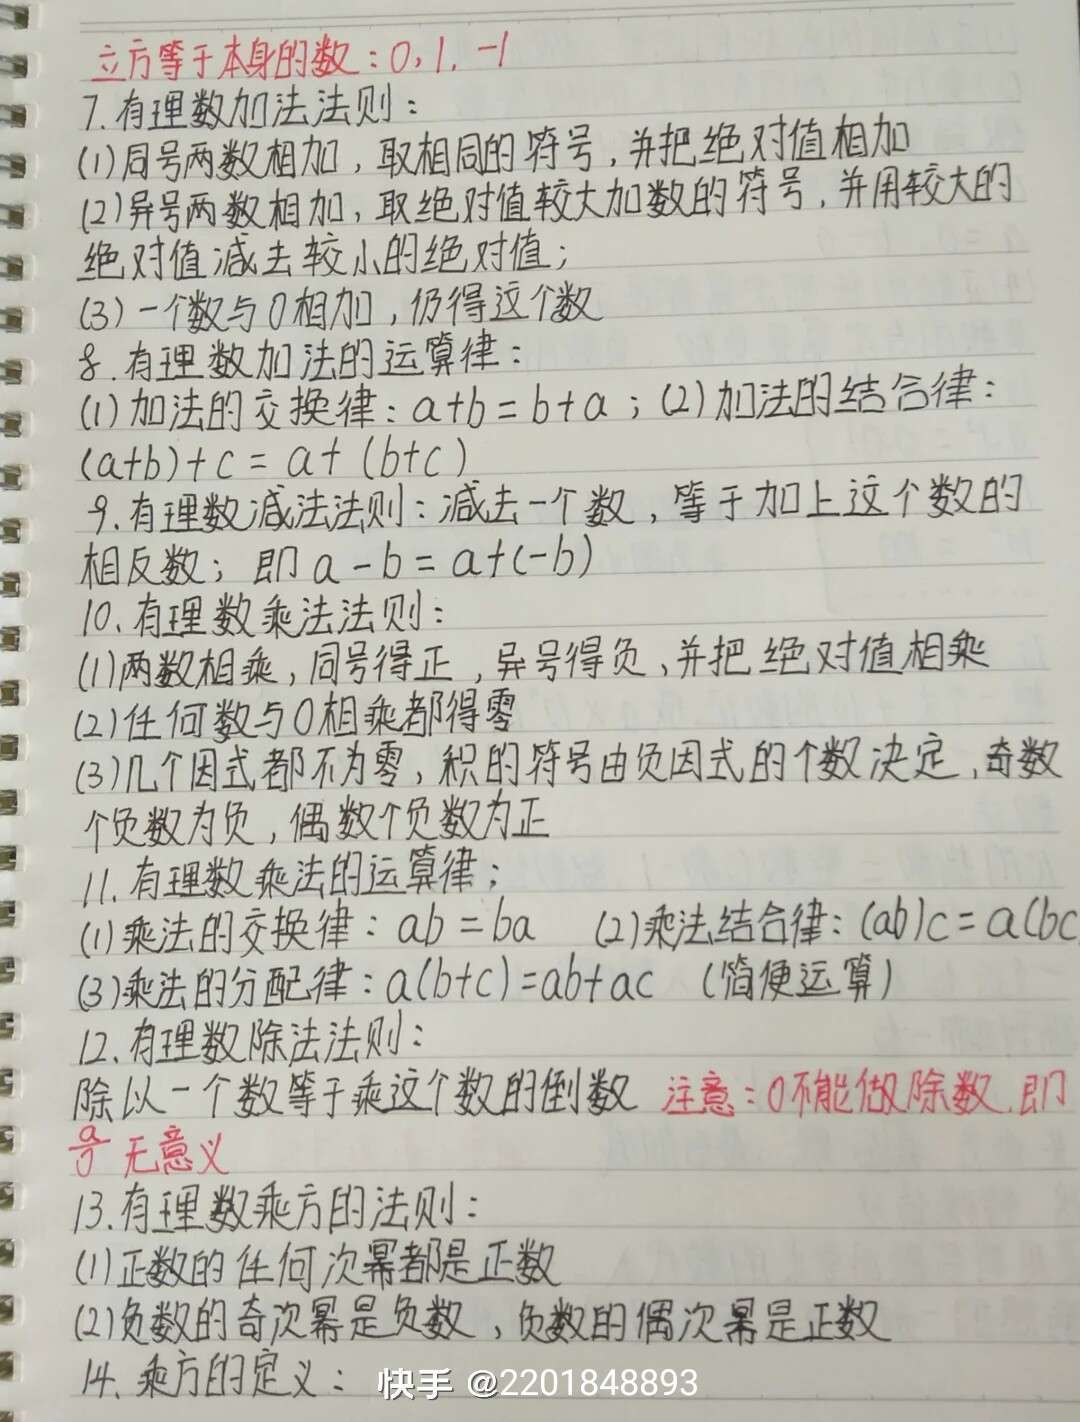 立方等于本身的数：0，1，-1
7.有理数加法法则：
(1)同号两数相加，取相同的符号，并把绝对值相加
(2)异号两数相加，取绝对值较大加数的符号，并用较大的
绝对值减去较小的绝对值；
(3)一个数与0相加，仍得这个数
8.有理数加法的运算律：
(1)加法的交换律：a+b=b+a；(2)加法的结合律：
(a+b)+c=a+(b+c)
9.有理数减法法则：减去一个数，等于加上这个数的
相反数；即a-b=a+(-b)
10.有理数乘法法则：
(1)两数相乘，同号得正，异号得负，并把绝对值相乘
(2)任何数与0相乘都得零
(3)几个因式都不为零，积的符号由负因式的个数决定，奇数
个负数为负，偶数个负数为正
11.有理数乘法的运算律；
(1)乘法的交换律：ab=ba (2)乘法结合律：(ab)c=a(bc
(3)乘法的分配律：a(b+c)=ab+ac （简便运算）
12.有理数除法法则：
除以一个数等于乘这个数的倒数 注意：0不能做除数，即
a/0 无意义
13.有理数乘方的法则：
(1)正数的任何次幂都是正数
(2)负数的奇次幂是负数，负数的偶次幂是正数
14.乘方的定义：
快手 @2201848893